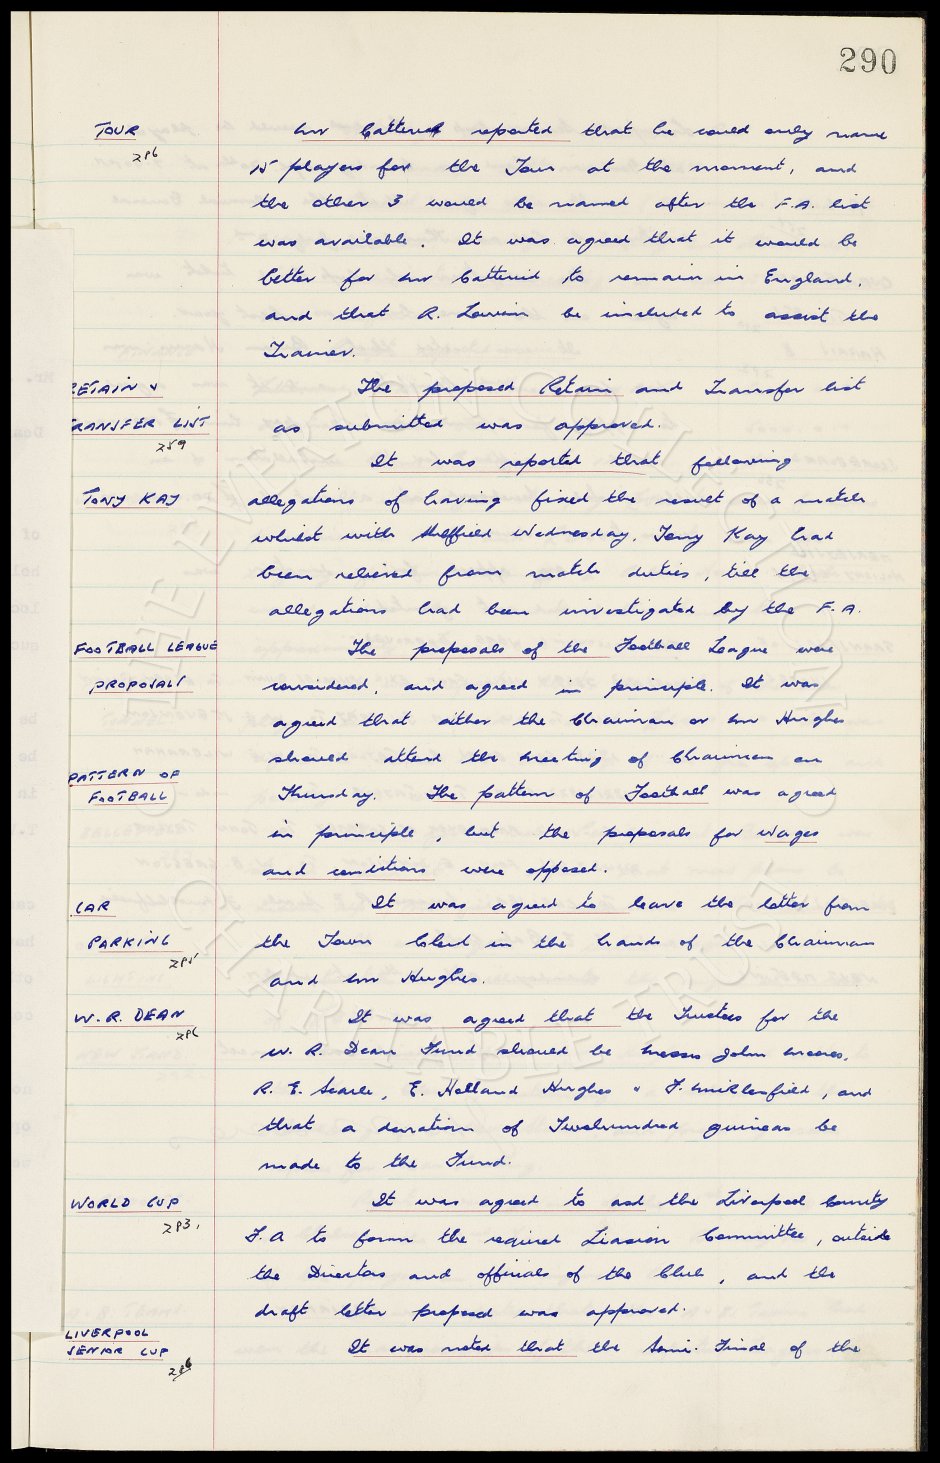 290
TOUR
286
Mr Catterick reported that he could only name
15 players for the Tour at the moment, and
the other 3 would be named after the F.A. list
was available. It was agreed that it would be
better for Mr Catterick to remain in England,
and that R. Lewin be included to assist the
Trainer.
RETAIN &
TRANSFER LIST
289
The proposed Retain and Transfer list
as submitted was approved.
TONY KAY
It was reported that following
allegations of having fixed the result of a match
whilst with Sheffield Wednesday, Tony Kay had
been relieved from match duties, till the
allegations had been investigated by the F.A.
FOOTBALL LEAGUE
PROPOSALS
The proposals of the Football League were
considered, and agreed in principle. It was
agreed that either the Chairman or Mr Hughes
should attend the meeting of Chairmen on
PATTERN OF
FOOTBALL
Thursday. The pattern of Football was agreed
in principle, but the proposals for wages
and conditions were opposed.
CAR
PARKING
285
It was agreed to leave the letter from
the Town Clerk in the hands of the Chairman
and Mr Hughes.
W. R. DEAN
286
It was agreed that the Trustees for the
W. R. Dean Fund should be Messrs John Moores,
R. E. Searle, E. Holland Hughes & F. Micklesfield, and
that a donation of Twohundred guineas be
made to the Fund.
WORLD CUP
283.
It was agreed to ask the Liverpool County
F.A to form the required Liasion Committee, outside
the Directors and officials of the Club, and the
draft letter proposed was approved.
LIVERPOOL
SENIOR CUP
286
It was noted that the Semi-Final of the
THE EVERTON COLLECTION
CHARITABLE TRUST